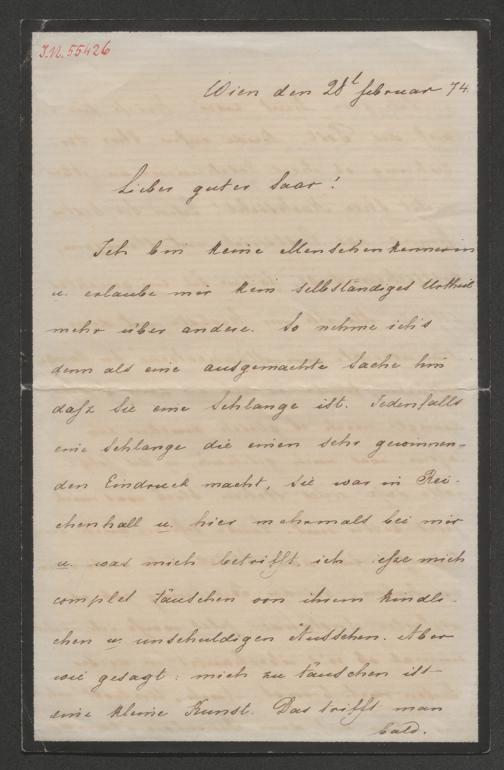 J.N. 55426
Wien den 28t februar 74.
Lieber guter Saar!
Ich bin keine Menschenkennerin
u. erlaube mir kein selbständiges Urtheil
mehr über andere. So nehme ich's
denn als eine ausgemachte Sache hin
dafz sie eine Schlange ist. Jedenfalls
eine Schlange die einen sehr gewinnen-
den Eindruck macht, sie war in Rei-
chenhall u. hier mehrmals bei mir
u. was mich betrifft, ich mich
complet täuschen von ihrem kindli-
chen u. unschuldigen Aussehen. Aber
wie gesagt: mich zu täuschen ist
eine kleine Kunst. Das trifft man
bald.